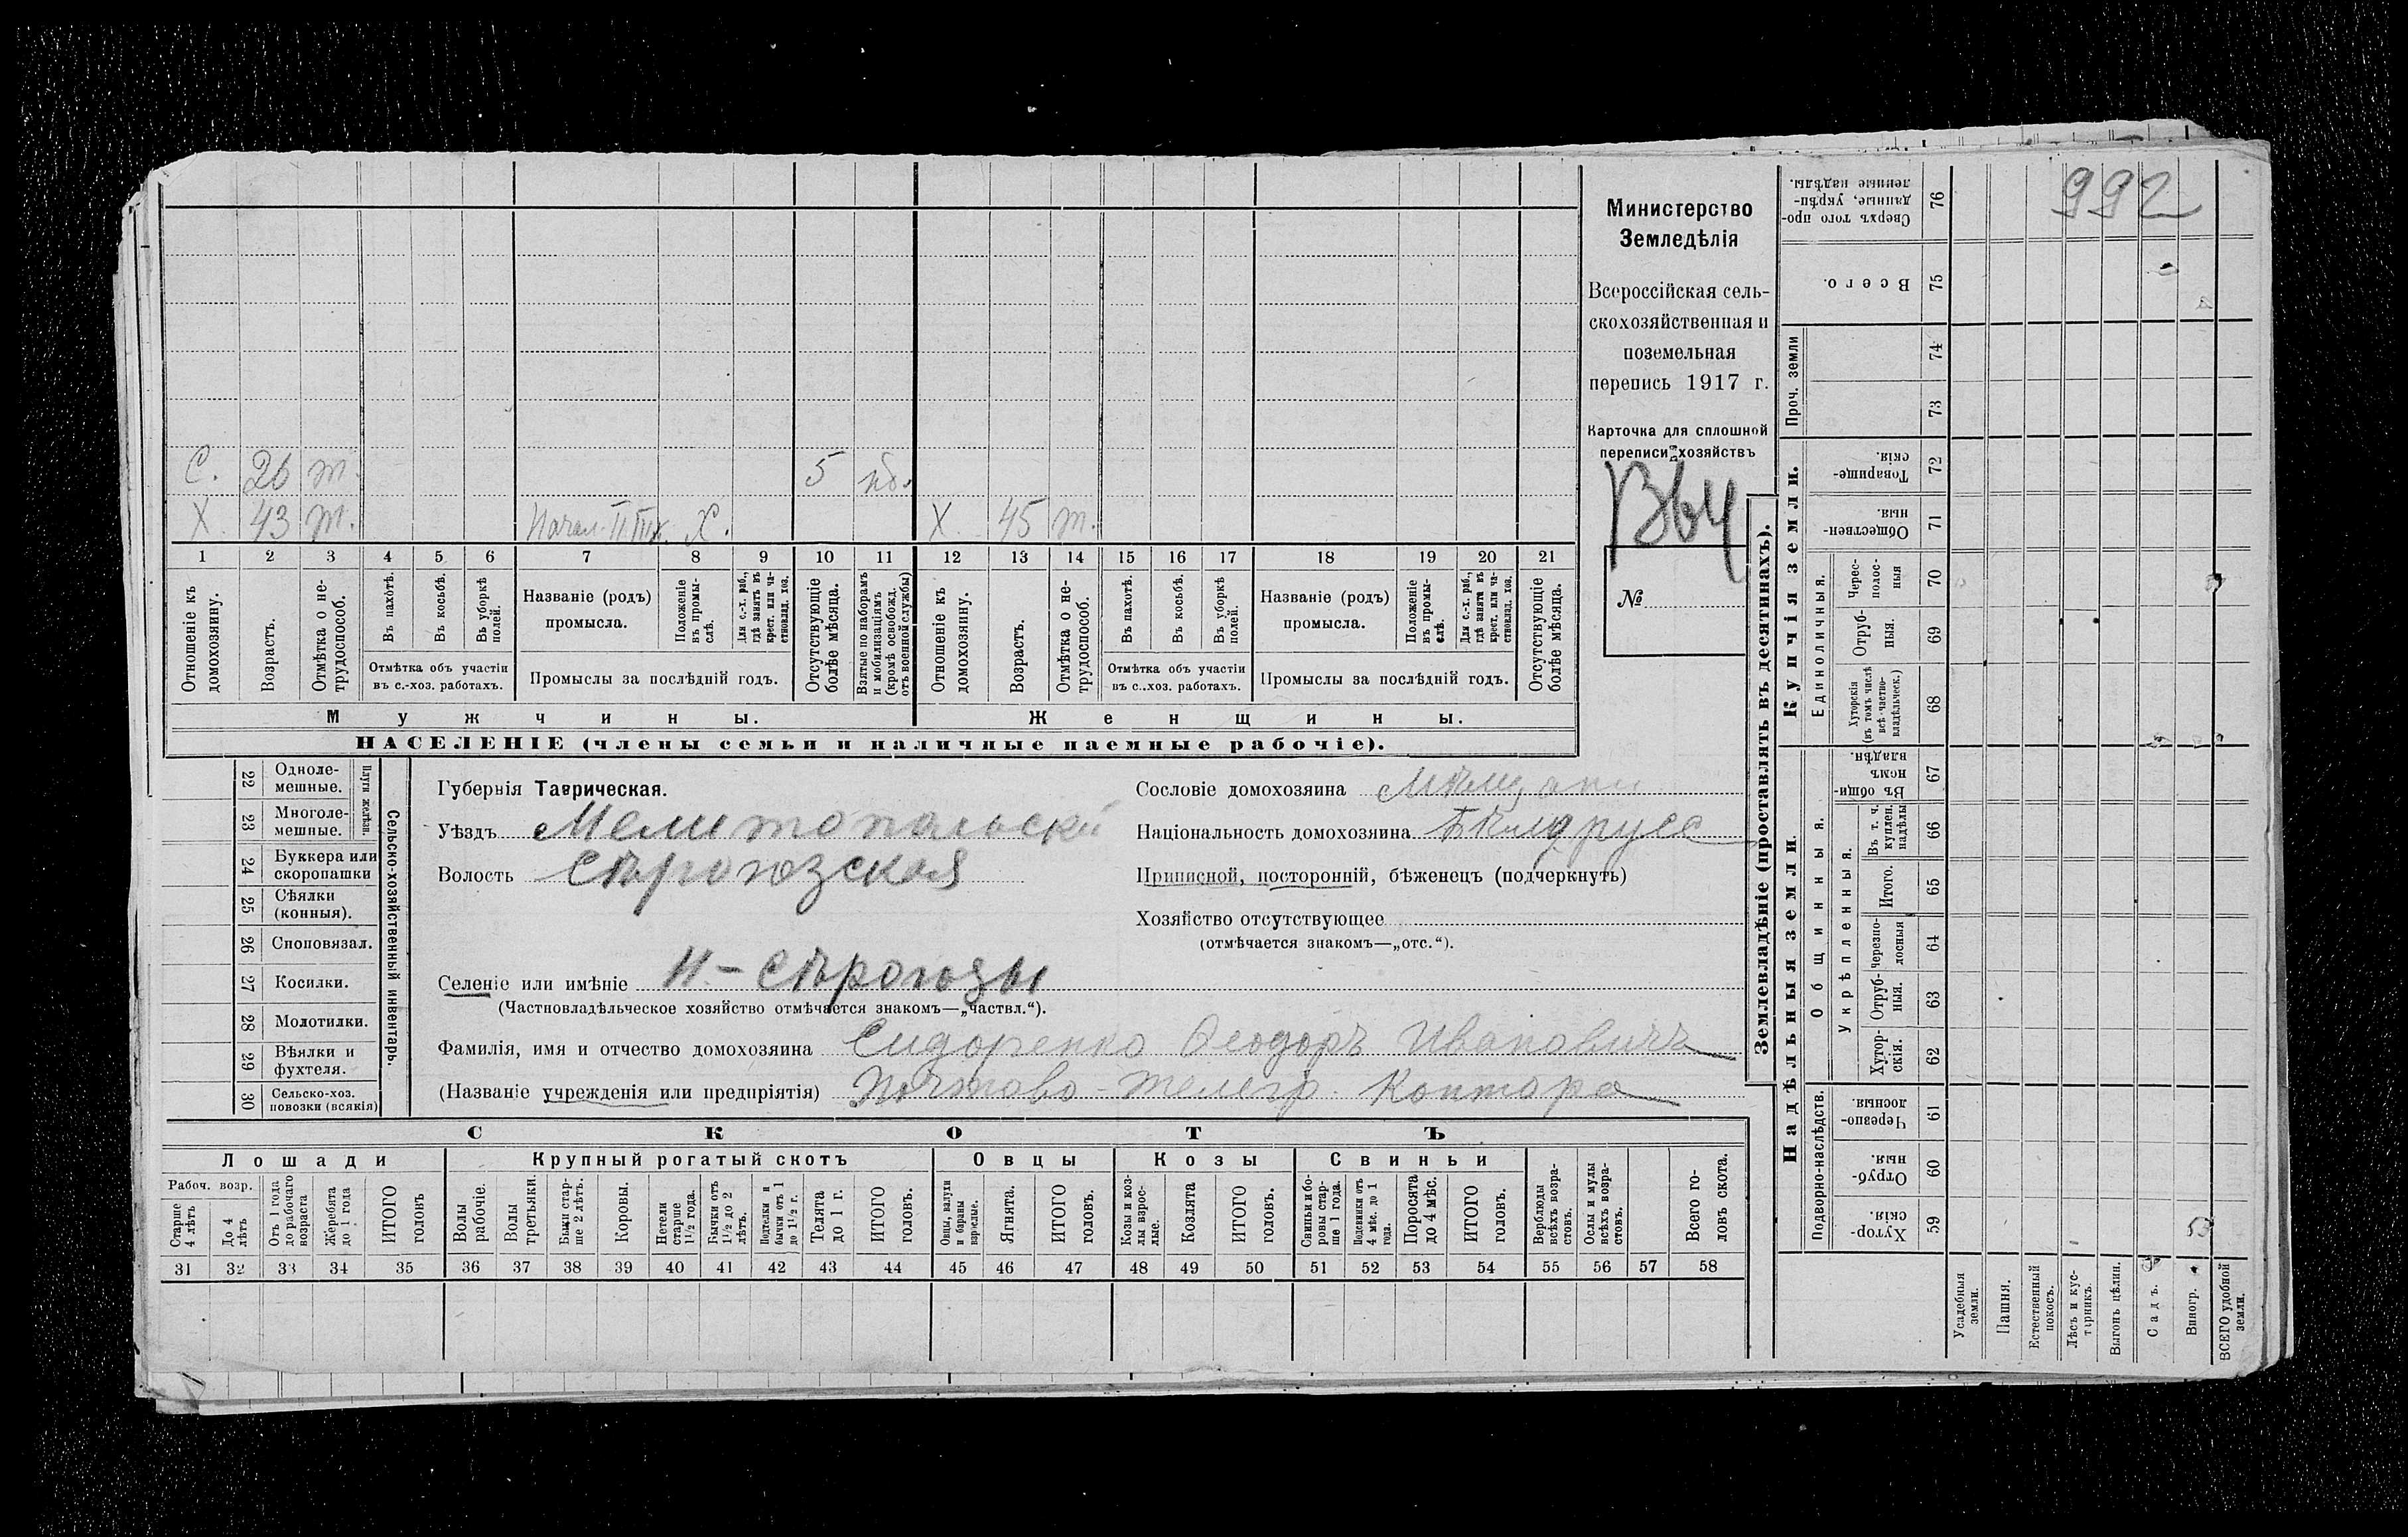 992
Министерство
Земледѣлія
Всероссійская сель-
скохозяйственная и
поземельная
перепись 1917 г.
Карточка для сплошной
переписи хозяйствъ
№
С. 26 т. 5 пб.
Х. 43 т. Х. Х 45 т.
1 2 3 4 5 6 7 8 9 10 11 12 13 14 15 16 17 18 19 20 21
Отношеніе къ домохозяину.
Возрастъ.
Отмѣтка о не-трудоспособ.
Въ пахотѣ.
Въ косьбѣ.
Въ уборкѣ полей.
Отмѣтка объ участіи
въ с.-хоз. работахъ.
Названіе (родъ)
промысла.
Положеніе въ промы-слѣ.
Для с.-х. раб., гдѣ занятъ въ крест. или ча-стновлад. хоз.
Промыслы за послѣдній годъ.
Отсутствующіе болѣе мѣсяца.
Взятые по наборамъ и мобилизаціямъ (кромѣ освобожд. отъ военной службы)
Отношеніе къ домохозяину.
Возрастъ.
Отмѣтка о не-трудоспособ.
Въ пахотѣ.
Въ косьбѣ.
Въ уборкѣ полей.
Отмѣтка объ участіи
въ с.-хоз. работахъ.
Названіе (родъ)
промысла.
Положеніе въ промы-слѣ.
Для с.-х. раб., гдѣ занята въ крест. или ча-стновлад. хоз.
Промыслы за послѣдній годъ.
Отсутствующіе болѣе мѣсяца.
Мужчины.
Женщины.
НАСЕЛЕНІЕ (члены семьи и наличные наемные рабочіе).
22 Одноле-мешные.
23 Многоле-мешные.
Плуги желѣзн.
24 Буккера или скоропашки
25 Сѣялки (конныя).
26 Сноповязал.
27 Косилки.
28 Молотилки.
29 Вѣялки и фухтеля.
30 Сельско-хоз. повозки (всякія)
Сельско-хозяйственный инвентарь.
Губернія Таврическая.
Уѣздъ Мелитопольскій
Волость Сѣрогозская
Селеніе или имѣніе Н-Сѣрогозы
(Частновладѣльческое хозяйство отмѣчается знакомъ—„частвл.“).
Фамилія, имя и отчество домохозяина Сидоренко Ѳеодоръ Ивановичъ
(Названіе учрежденія или предпріятія) Почтово-телегр. Контора
Сословіе домохозяина Мѣщани
Національность домохозяина Бѣлорусс
Приписной, посторонній, бѣженецъ (подчеркнуть)
Хозяйство отсутствующее
(отмѣчается знакомъ—„отс.“).
СКОТЪ
Лошади
Крупный рогатый скотъ
Овцы
Козы
Свиньи
Рабоч. возр.
Старше 4 лѣтъ
До 4 лѣтъ
Отъ 1 года до рабочаго возраста
Жеребята до 1 года
ИТОГО головъ
Волы рабочіе.
Волы третьяки.
Быки стар-ше 2 лѣтъ.
Коровы.
Нетели старше 1½ года.
Бычки отъ 1½ до 2 лѣтъ.
Подтелки и бычки отъ 1 до 1½ г.
Телята до 1 г.
ИТОГО головъ.
Овцы, валухи и бараны взрослые.
Ягнята.
ИТОГО головъ.
Козы и коз-лы взрос-лые.
Козлята
ИТОГО головъ.
Свиньи и бо-ровы стар-ше 1 года.
Подсвинки отъ 4 мѣс. до 1 года.
Поросята до 4 мѣс.
ИТОГО головъ.
Верблюды всѣхъ возра-стовъ.
Ослы и мулы всѣхъ возра-стовъ.
Всего го-ловъ скота.
31 32 33 34 35 36 37 38 39 40 41 42 43 44 45 46 47 48 49 50 51 52 53 54 55 56 57 58
Землевладѣніе (проставлять въ десятинахъ).
Купчія земли.
Надѣльныя земли.
Сверхъ того про-данные, укрѣп-ленные надѣлы. 76
Всего. 75
Проч. земли
74
73
Товарище-скія. 72
Обществен-ныя. 71
Единоличныя.
Черес-полос-ныя 70
Отруб-ныя. 69
Хуторскія (въ томъ числѣ всѣ частно-владѣльческ.) 68
Въ общин-номъ владѣн. 67
Общинныя.
Укрѣпленныя.
Въ т. ч. куплен. надѣлы 66
Итого. 65
Черезпо-лосныя 64
Отруб-ныя. 63
Хутор-скія. 62
Подворно-наслѣдств.
Черезпо-лосныя. 61
Отруб-ныя. 60
Хутор-скія. 59
Усадебныя земли.
Пашня.
Естественный покосъ.
Лѣсъ и кус-тарникъ.
Выгонъ цѣлин.
Садъ.
Виногр.
ВСЕГО удобной земли.